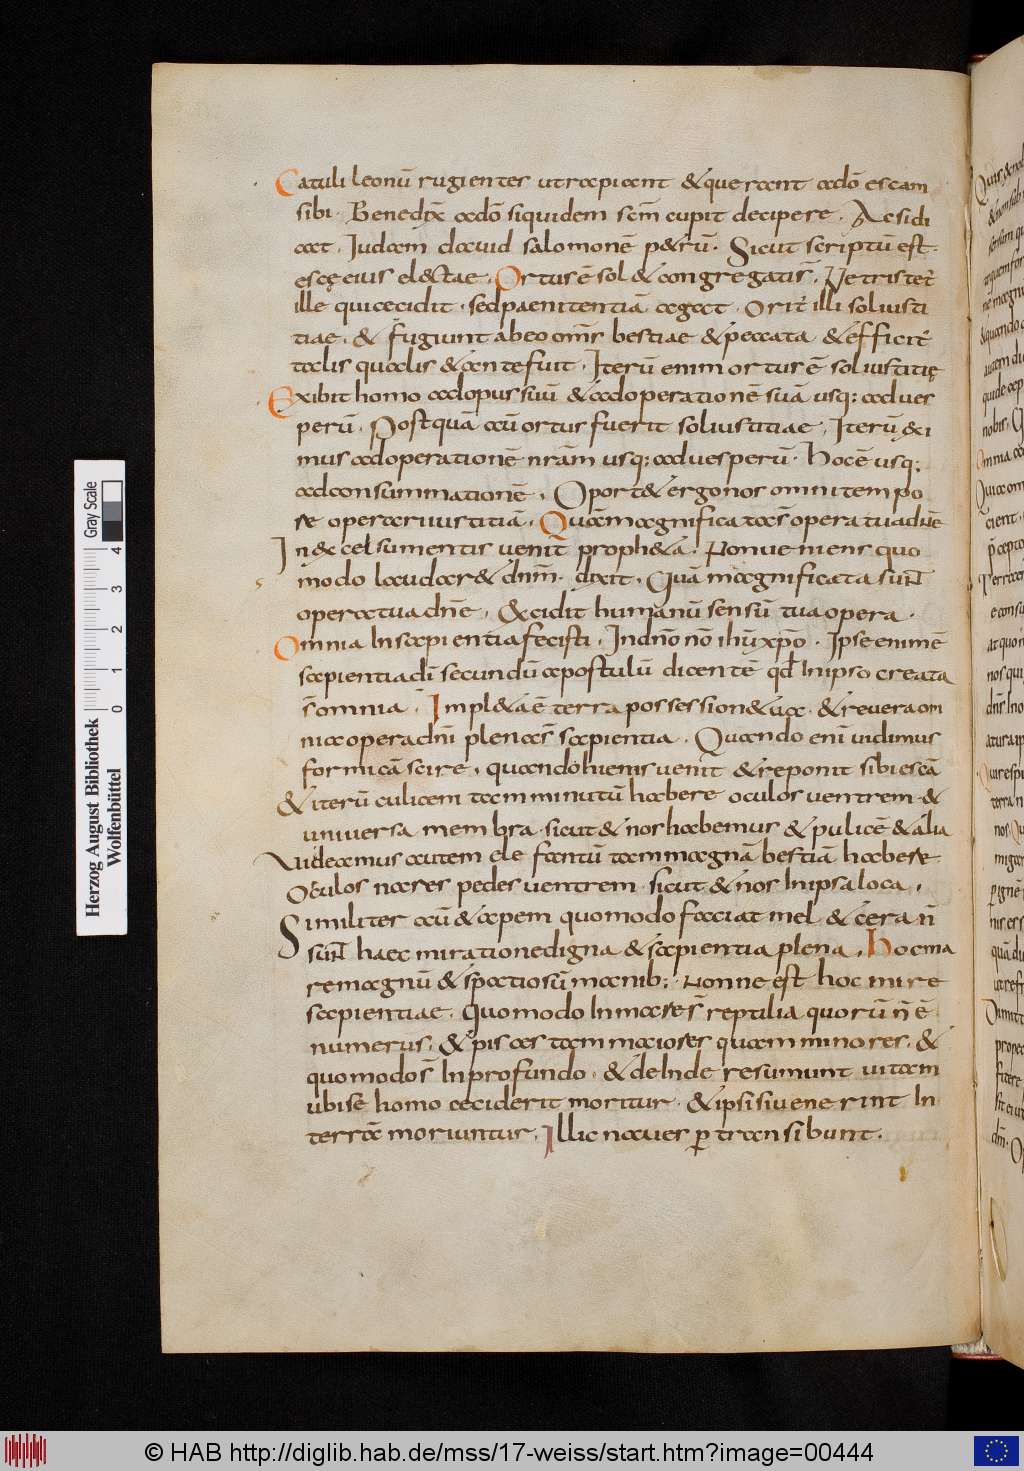 Catuli leonū rugientes utrapiant & querant adō escam
sibi. Benedix̄ adō siquidem scm̄ cupit decipere. A desidi
rat. Iudam dauid salomonē p&rū. Sicut scriptū est
escę eius el&tae. Ortus ē sol & congregati s̄. Petrus ter̄
ille qui cecidit. sed paenitentiā aegat. Orit̄ illi sol iusti
tiae. & fugiunt ab eo om̄s bestiae & peccata. & efficit̄
talis qualis & ante fuit. Iterū enim ortus ē sol iustitię
Exibit homo ad opus suū & ad operationē suā usq; ad ues
perū. Postquā cū ortus fuerit sol iustitiae. Iterū exi
mus ad operationē nrām usq; ad uesperū. hoc ē usq;
ad consummationē. Oport& ergo nos omni tempo
re operari iustitiā. Quā magnificata s̄ opera tua dnē
In excelsum entis uenit proph&a. Non ueniens quo
modo laudar& dnm̄. dixit. Quā magnificata sunt
opera tua dnē. Excidit humanū sensū tua opera.
Omnia In sapientia fecisti. In dn̄o nō ihū xp̄o. Ipse enim ē
sapientia dī secundū apostulū dicentē qd̄ In ipso creata
s̄ omnia. Impl&a ē terra possession& ua. & reuera om
nia opera dn̄i plena s̄ sapientia. Quando enī uidimus
formicā scire. quando hiems uenit & reponit sibi escā
& iterū culicem tam minutū habere oculos uentrem. &
uniuersa membra. sicut & nos habemus & pulicē & alia
Uideamus autem elefantū tam magnā bestiā habere
Oculos nares pedes uentrem. sicut & nos In ipsa loca.
Similiter cū & apem quomodo faciat mel & cera n̄
sunt haec miratione digna & sapientia plena. Hoc ma
re magnū & spatiosū manib; Nonne est hoc mire
sapientiae. Quomodo In mare s̄ reptilia quorū n̄ ē
numerus. & pisces tam maiores quam minores. &
quomodo s̄ In profundo. & de Inde resumunt uitam
ubi se homo ceciderit moritur. & ipsi si uenerint In
terra moriuntur. Illic naues ꝑ transibunt.
Gray Scale
4 3 2 1 0
Herzog August Bibliothek
Wolfenbüttel
© HAB http://diglib.hab.de/mss/17-weiss/start.htm?image=00444